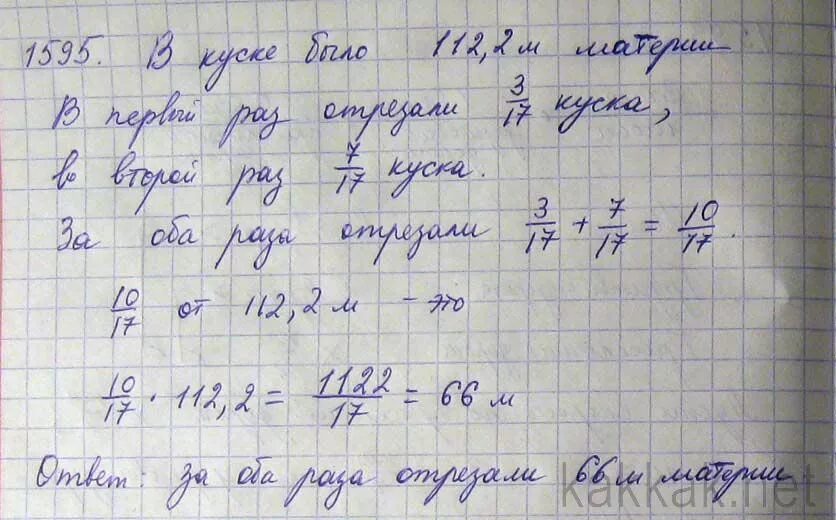 1595. В куске было 112,2 м материи
В первый раз отрезали 3/17 куска,
во второй раз 7/17 куска.
За оба раза отрезали 3/17 + 7/17 = 10/17.
10/17 от 112,2 м - это
10/17 · 112,2 = 1122/17 = 66 м
Ответ: за оба раза отрезали 66 м материи
kakkak.net